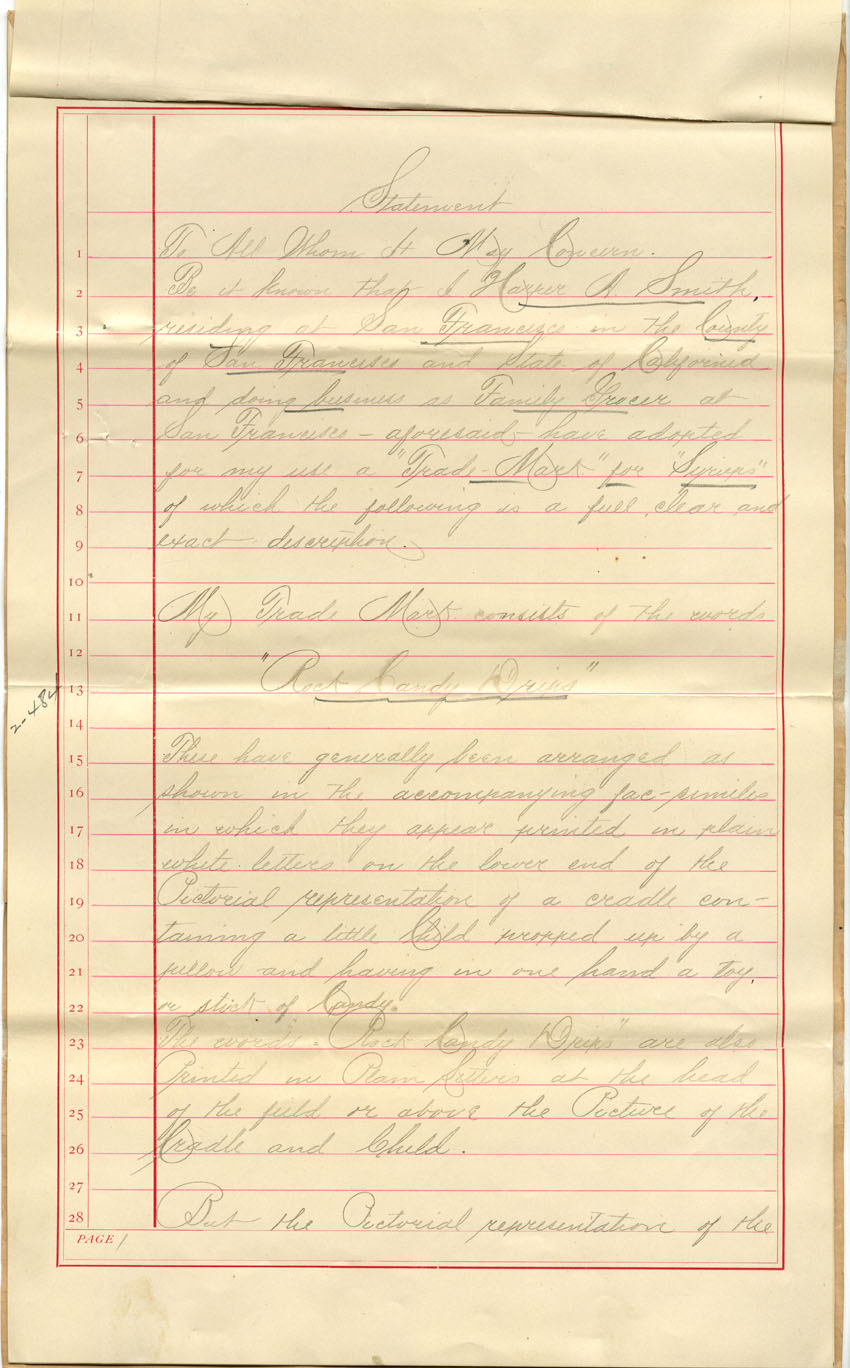 Statement
1 To All Whom It May Concern.
2 Be it known that I Harrer A. Smith,
3 residing at San Francisco in the County
4 of San Francisco and State of California
5 and doing business as Family Grocer at
6 San Francisco - aforesaid - have adopted
7 for my use a "Trade-Mark" for "Syrups"
8 of which the following is a full, clear and
9 exact description.
10
11 My Trade Mark consists of the words
12
13 "Rock Candy Drips"
2-484
14
15 These have generally been arranged as
16 shown in the accompanying fac-similes
17 in which they appear printed in plain
18 white letters on the lower end of the
19 Pictorial representation of a cradle con-
20 taining a little Child propped up by a
21 pillow and having in one hand a toy,
22 or stick of Candy.
23 The words "Rock Candy Drips" are also
24 Printed in Plain Letters at the head
25 of the field or above the Picture of the
26 Cradle and Child.
27
28 But the Pictorial representation of the
PAGE 1